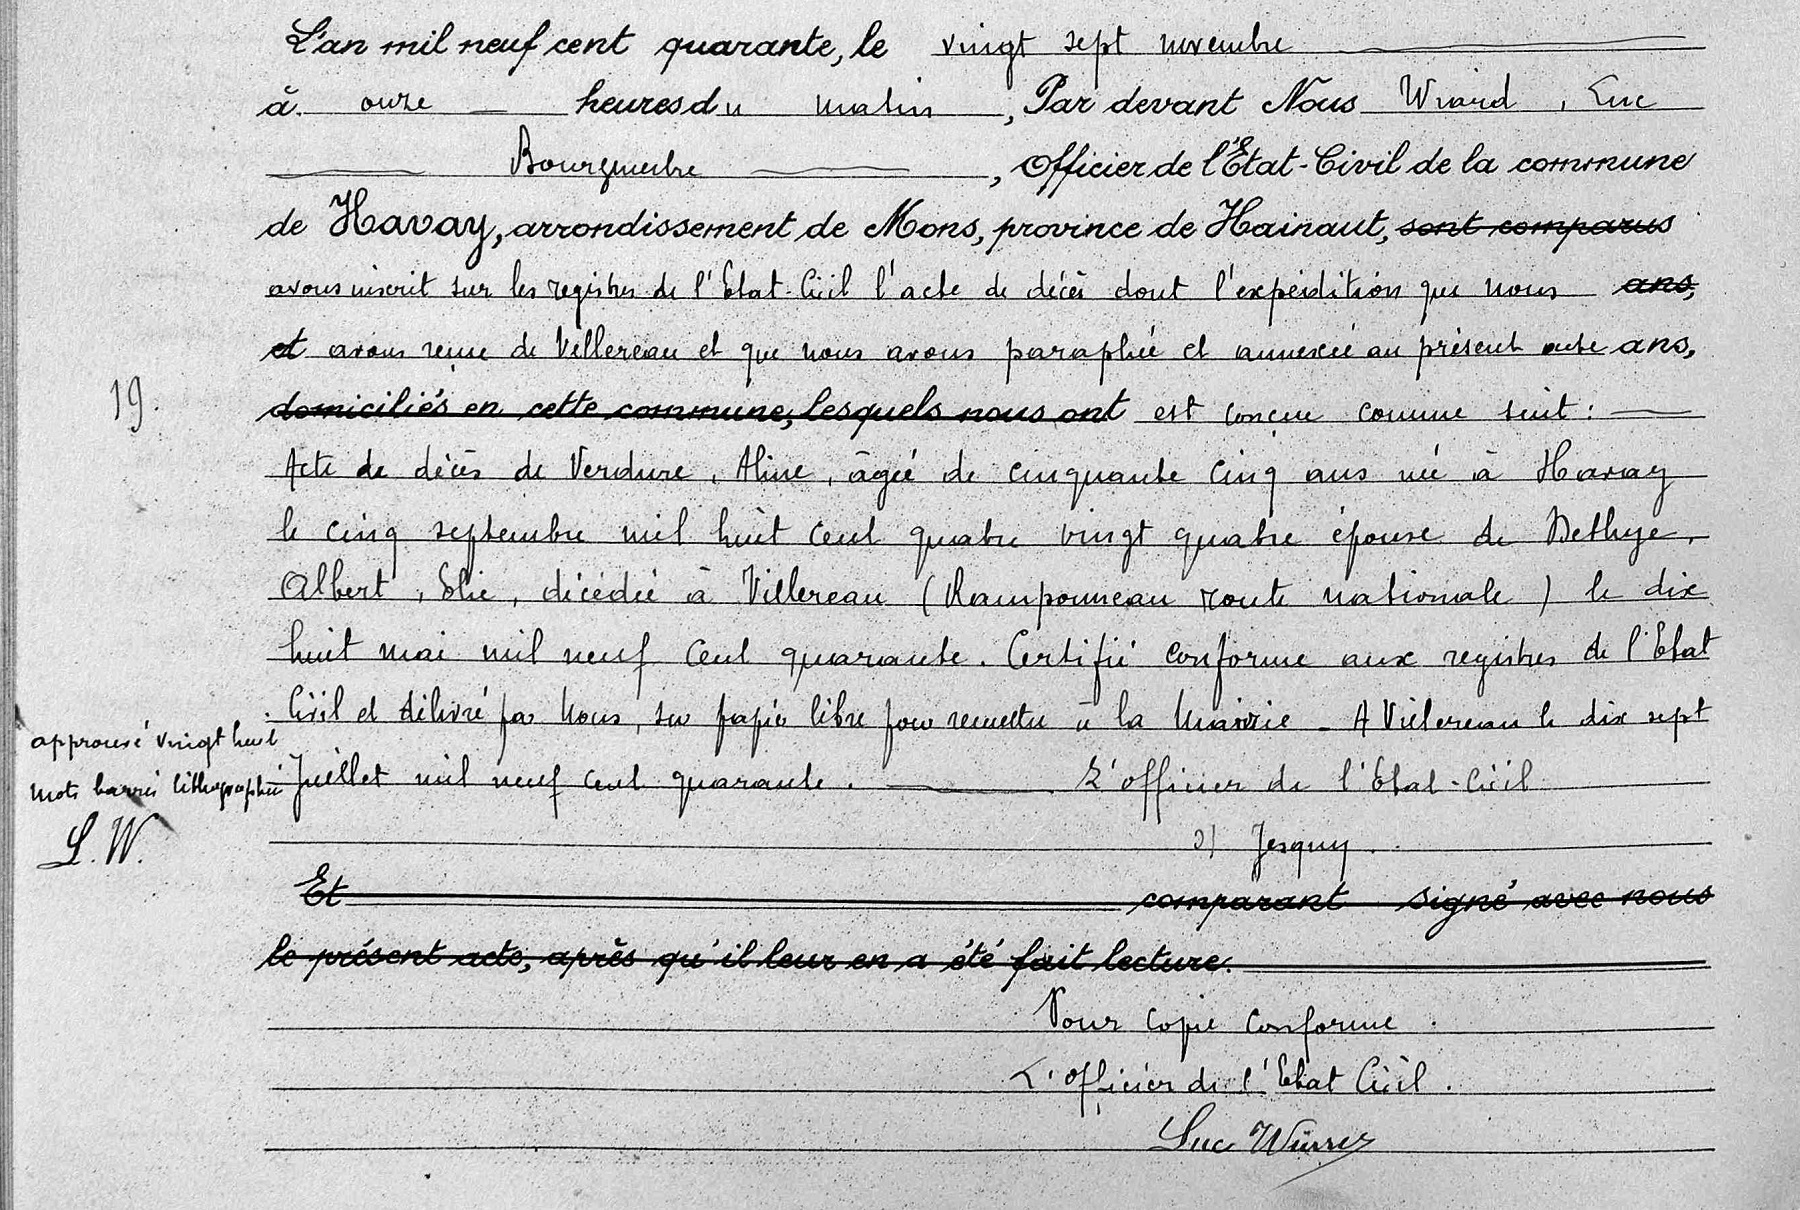 L'an mil neuf cent quarante, le vingt sept novembre
à onze heures du matin, Par devant Nous Wiard, Luc
Bourgmestre, Officier de l'Etat-Civil de la commune
de Havay, arrondissement de Mons, province de Hainaut, sont comparus
avons inscrit sur les registres de l'Etat-Civil l'acte de décès dont l'expédition que nous ans,
et avons reçue de Villereau et que nous avons paraphée et annexée au présent acte ans,
19.
domiciliés en cette commune, lesquels nous ont est conçue comme suit :
Acte de décès de Verdure, Aline, âgée de cinquante cinq ans née à Havay
le cinq septembre mil huit cent quatre vingt quatre épouse de Dethye,
Albert, Elie, décédée à Villereau (Ramponneau route nationale) le dix
huit mai mil neuf cent quarante. Certifié conforme aux registres de l'Etat
Civil et délivré par Nous, sur papier libre pour remettre à la Mairie - A Villereau le dix sept
approuvé vingt huit
mots barrés lithographiés
L. W.
Juillet mil neuf cent quarante. L'officier de l'Etat-Civil
s) Jesquy.
Et comparant signé avec nous
le présent acte, après qu'il leur en a été fait lecture.
Pour copie conforme.
L'officier de l'Etat Civil.
Luc